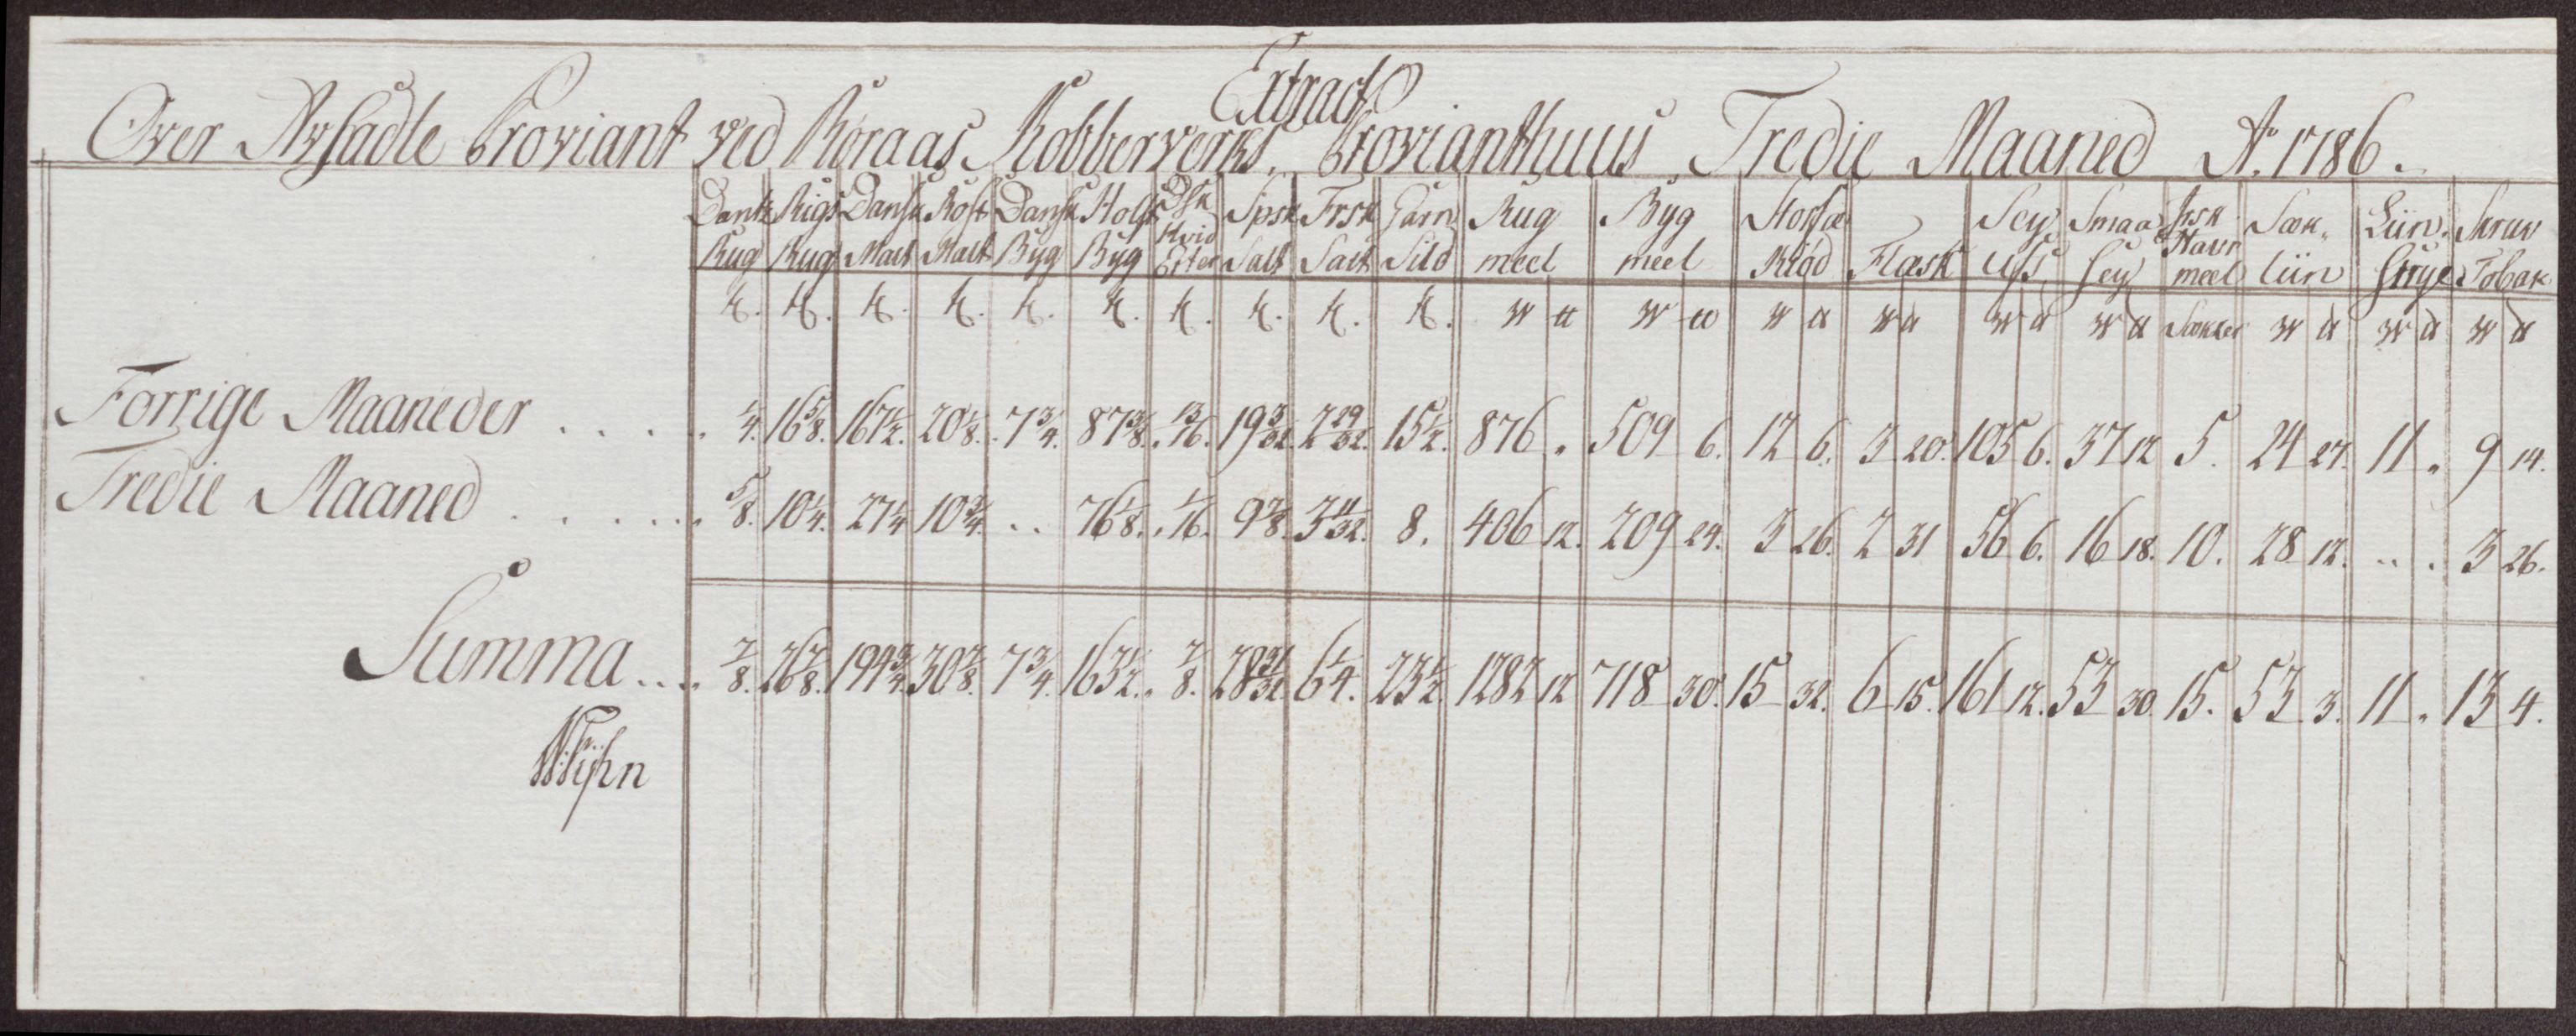 Extract
Over Avsadte Proviant ved Röraas Kobberverks Provianthuus Tredie Maaned Aº. 1786.
Dantz Rug | Rigs Rug | Dansk Malt | Rost Malt | Dansk Byg | Holst Byg | Dsk Hvid Erter | Spsk Salt | Frsk Salt | Garn Sild | Rug meel | Byg meel | Storfæ Kiöd | Flæsk | Sey Ufs | Smaa Sey | Irsk Havr meel Sækker | Sæk liin | Liin Gryt | Skruv Tobak
Forrige Maaneder . . . . . 1/4. | 16 5/8. | 167 1/2. | 20 1/8. | 7 3/4. | 87 3/8. | 13/16. | 19 3/32. | 2 29/32. | 15 1/2. | 876 " | 509 6. | 12 6. | 3 20. | 105 6. | 37 12 | 5. | 24 27. | 11 " | 9 14.
Tredie Maaned . . . . . . 5/8. | 10 1/4. | 27 1/4 | 10 3/4. | .. | 76 1/8. | 1/16. | 9 7/8. | 3 11/32. | 8. | 406 12. | 209 24. | 3 26. | 2 31 | 56 6. | 16 18. | 10. | 28 12. | .. . | 3 26.
Summa . . . 7/8. | 26 7/8. | 194 3/4. | 30 7/8. | 7 3/4. | 163 1/2. | 7/8. | 28 31/32. | 6 1/4. | 23 1/2. | 1282 12 | 718 30. | 15 32. | 6 15. | 161 12. | 53 30. | 15. | 53 3. | 11 " | 13 4.